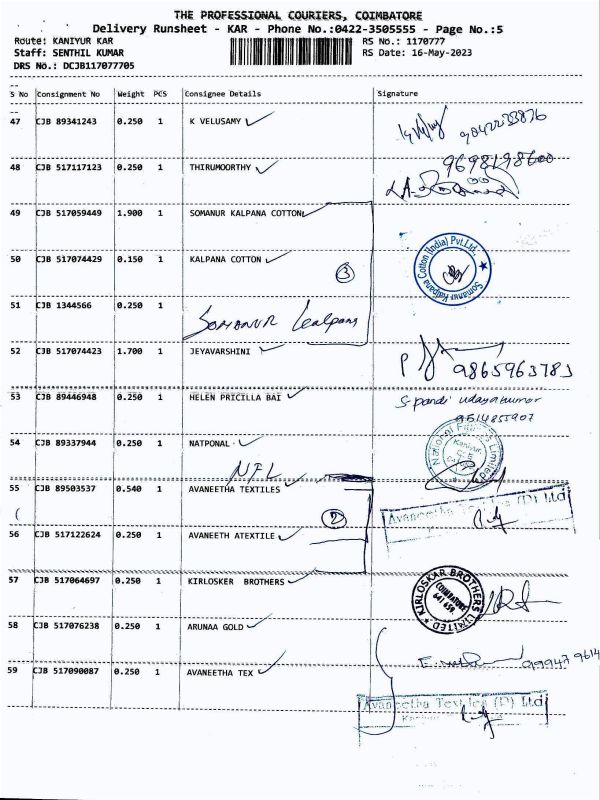 THE PROFESSIONAL COURIERS, COIMBATORE
Delivery Runsheet - KAR - Phone No.:0422-3505555 - Page No.:5
Route: KANIYUR KAR
RS No.: 1170777
Staff: SENTHIL KUMAR
RS Date: 16-May-2023
DRS No.: DCJB117077705
S No Consignment No Weight PCS Consignee Details Signature
47 CJB 89341243 0.250 1 K VELUSAMY
48 CJB 517117123 0.250 1 THIRUMOORTHY
9698198600
49 CJB 517059449 1.900 1 SOMANUR KALPANA COTTON
50 CJB 517074429 0.150 1 KALPANA COTTON
3
Somanur Kalpana Cotton (India) Pvt.Ltd.
51 CJB 1344566 0.250 1
SOMANUR Kalpana
52 CJB 517074423 1.700 1 JEYAVARSHINI
9865963783
53 CJB 89446948 0.250 1 HELEN PRICILLA BAI
S. pandi udayakumar
9514855907
54 CJB 89337944 0.250 1 NATPONAL
NFL
55 CJB 89503537 0.540 1 AVANEETHA TEXTILES
2
Avaneetha Textiles (P) Ltd
56 CJB 517122624 0.250 1 AVANEETH ATEXTILE
57 CJB 517064697 0.250 1 KIRLOSKER BROTHERS
KIRLOSKAR BROTHERS LIMITED
COIMBATORE
641 659
58 CJB 517076238 0.250 1 ARUNAA GOLD
59 CJB 517090087 0.250 1 AVANEETHA TEX
Avaneetha Textiles (P) Ltd